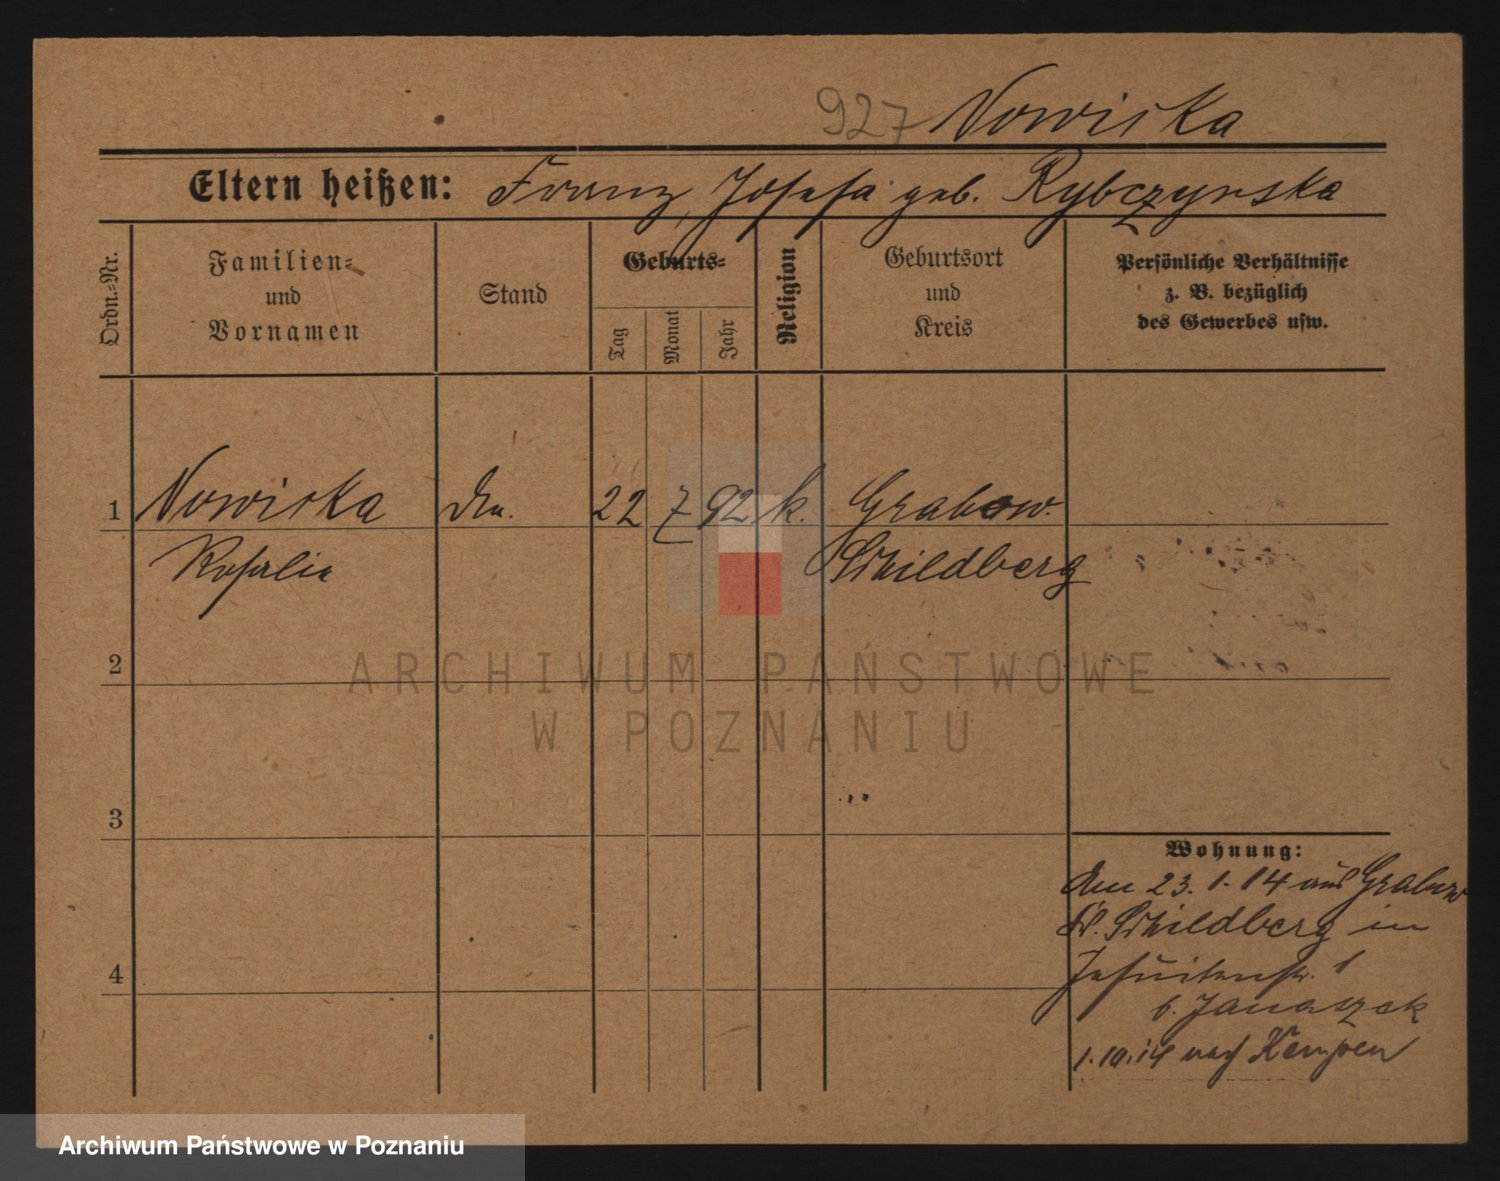 927 Nowiska
Eltern heißen: Franz, Josefa geb. Rybczynska
Ordn.-Nr.
Familien-
und
Vornamen
Stand
Geburts-
Tag
Monat
Jahr
Religion
Geburtsort
und
Kreis
Persönliche Verhältnisse
z. B. bezüglich
des Gewerbes usw.
1 Nowiska 22 7 92 k. Grabow.
Rosalie Schildberg
2
ARCHIWUM PAŃSTWOWE
W POZNANIU
3
Wohnung:
Am 23.1.14 aus Grabow
Kr. Schildberg in
4
Jesuitenstr. 1
b. Janaczek
1.10.14 nach Kempen
Archiwum Państwowe w Poznaniu